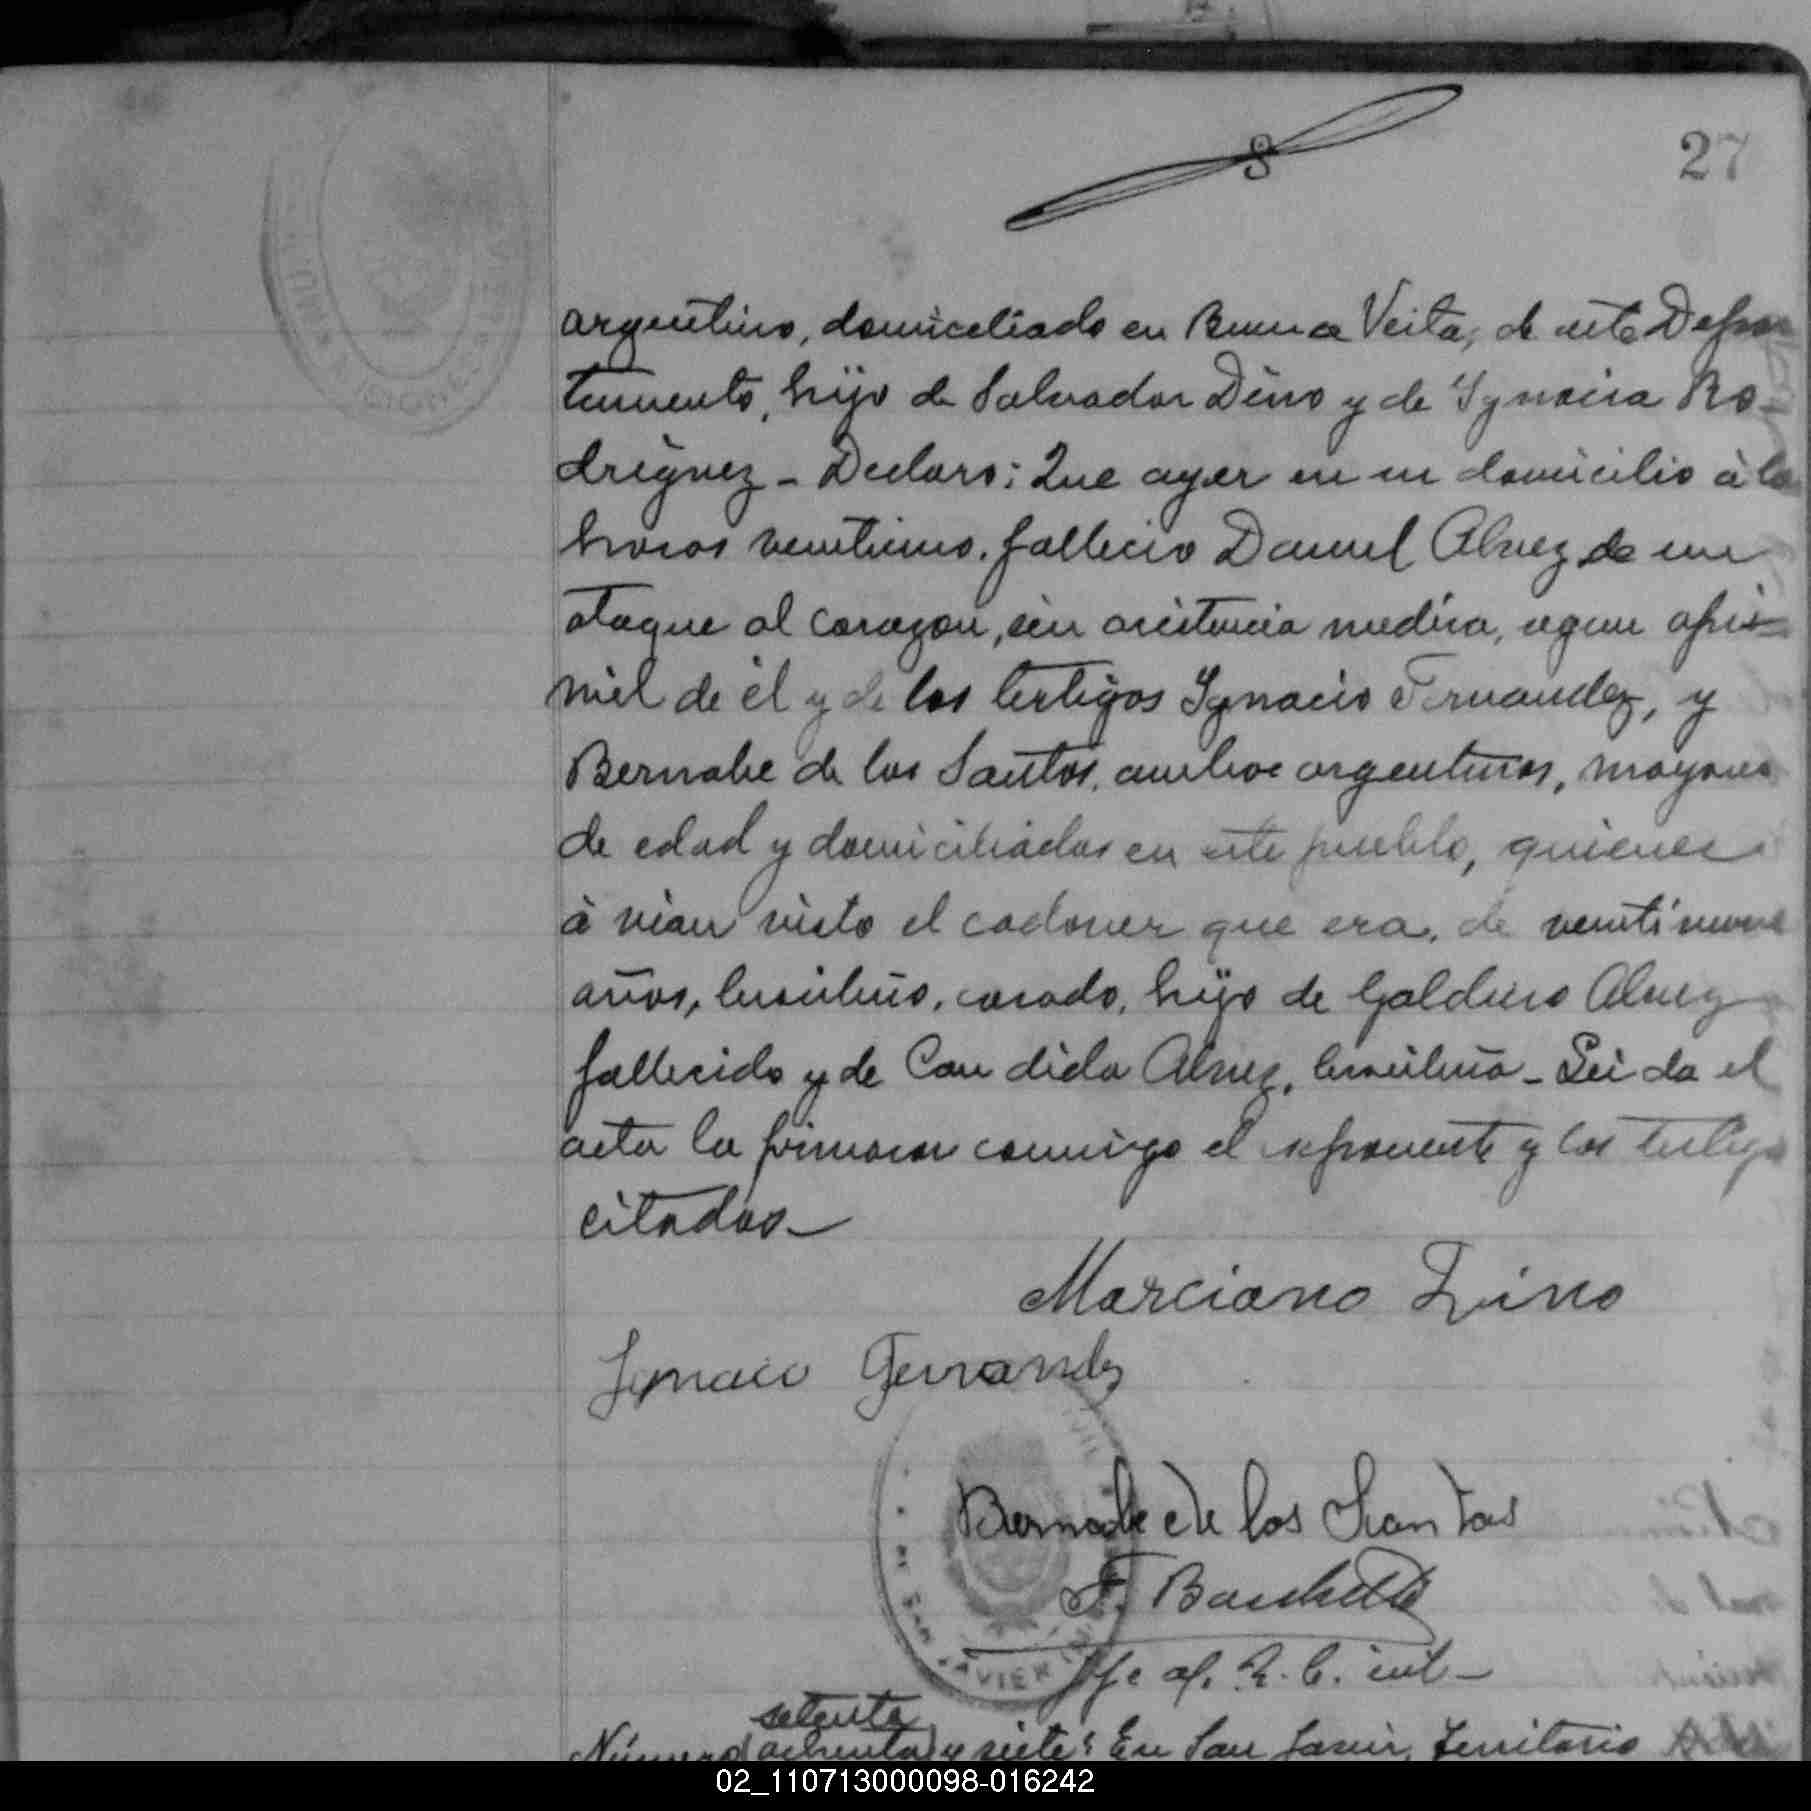 27
argentino, domiceliado en Buena Veita, de este Depar
tamento, hijo de Salvador Dino y de Ygnacia Ro-
driguez - Declaro: Que ayer en su domicilio à las
horas veintiuno. fallecio Daniel Alvez de un
ataque al corazon, sin asistencia medica, segun
de él y de los testigos Ygnacio Fernandez, y
Bernabe de los Santos, ambos argentinos, mayores
de edad y domiciliados en este pueblo, quienes
à vian visto el cadaver que era, de veintinueve
años, brasileño, casado, hijo de Galdino Alvez
fallecido y de Candida Alvez, brasileña - Leida el
acta la firmaron conmigo el esponente y los testigo
citados -
Marciano Dino
Ignacio Fernandez
Bernabe de los Santos
F.
Jfe of. R. C. int -
SAN JAVIER
setenta
Número (ochenta) y siete: En San Javier, Territorio
02_110713000098-016242